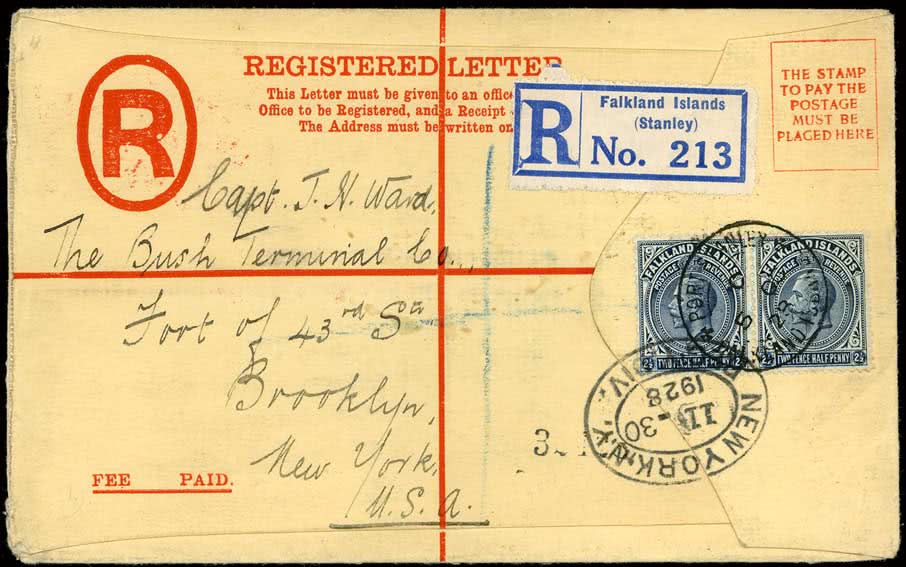 REGISTERED LETTER
This Letter must be given to an offic
Office to be Registered, and a Receipt
The Address must be written on
R
R
Falkland Islands
(Stanley)
No. 213
THE STAMP
TO PAY THE
POSTAGE
MUST BE
PLACED HERE
Capt. J. H. Ward,
The Bush Terminal Co.,
Foot of 43rd St
Brooklyn,
New York,
U.S.A.
FEE PAID.
FALKLAND ISLANDS
POSTAGE REVENUE
2½ TWO PENCE HALF PENNY 2½
FALKLAND ISLANDS
POSTAGE
2½ TWO PENCE HALF PENNY 2½
NEW YORK, N.Y.
DIV.
11-30
1928